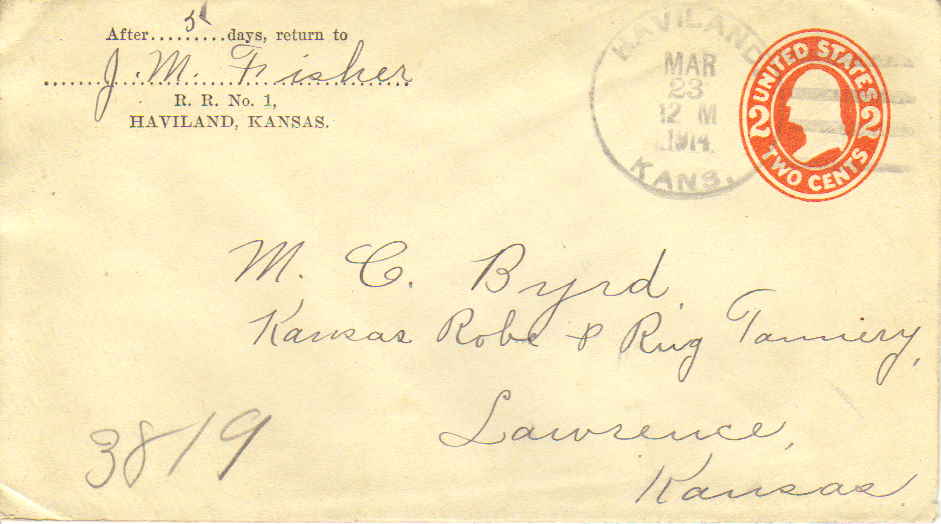 After...5...days, return to
J. M. Fisher
R. R. No. 1,
HAVILAND, KANSAS.
HAVILAND
MAR
23
12 M
1914
KANS.
UNITED STATES
2 2
TWO CENTS
M. C. Byrd,
Kansas Robe & Rug Tannery,
Lawrence,
Kansas.
3819